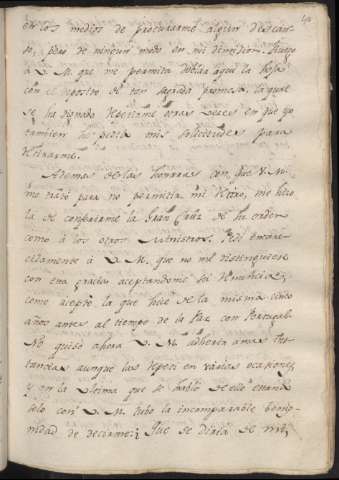 en los medios de procurarme algun descan-
so, pero de ningun modo en mi dimision. Ruego
à V. M. que me permita doblar aqui la hoja
con el deposito de tan sagrada promesa, la qual
se ha dignado repetirme otras veces en que yo
tambien he hecho mis solicitudes para
retirarme.
Ademas de las honras con que V. M.
me trató para no permitir mi retiro, me hizo
la de confiarme la Gran Cruz de su orden
como à los otros Ministros. Pedi encare-
cidamente à V. M. que no me distinguiese
con esa gracia, aceptandome su renuncia,
como aceptó la que hice de la misma cinco
años antes al tiempo de la Paz con Portugal.
No quiso ahora V. M. adherir a mis Ins-
tancias aunque las repeti en varias ocasiones,
y en la ultima que se habló de ello estando
solo con V. M. tubo la incomparable benig-
nidad de decirme: Que se diria de mi,